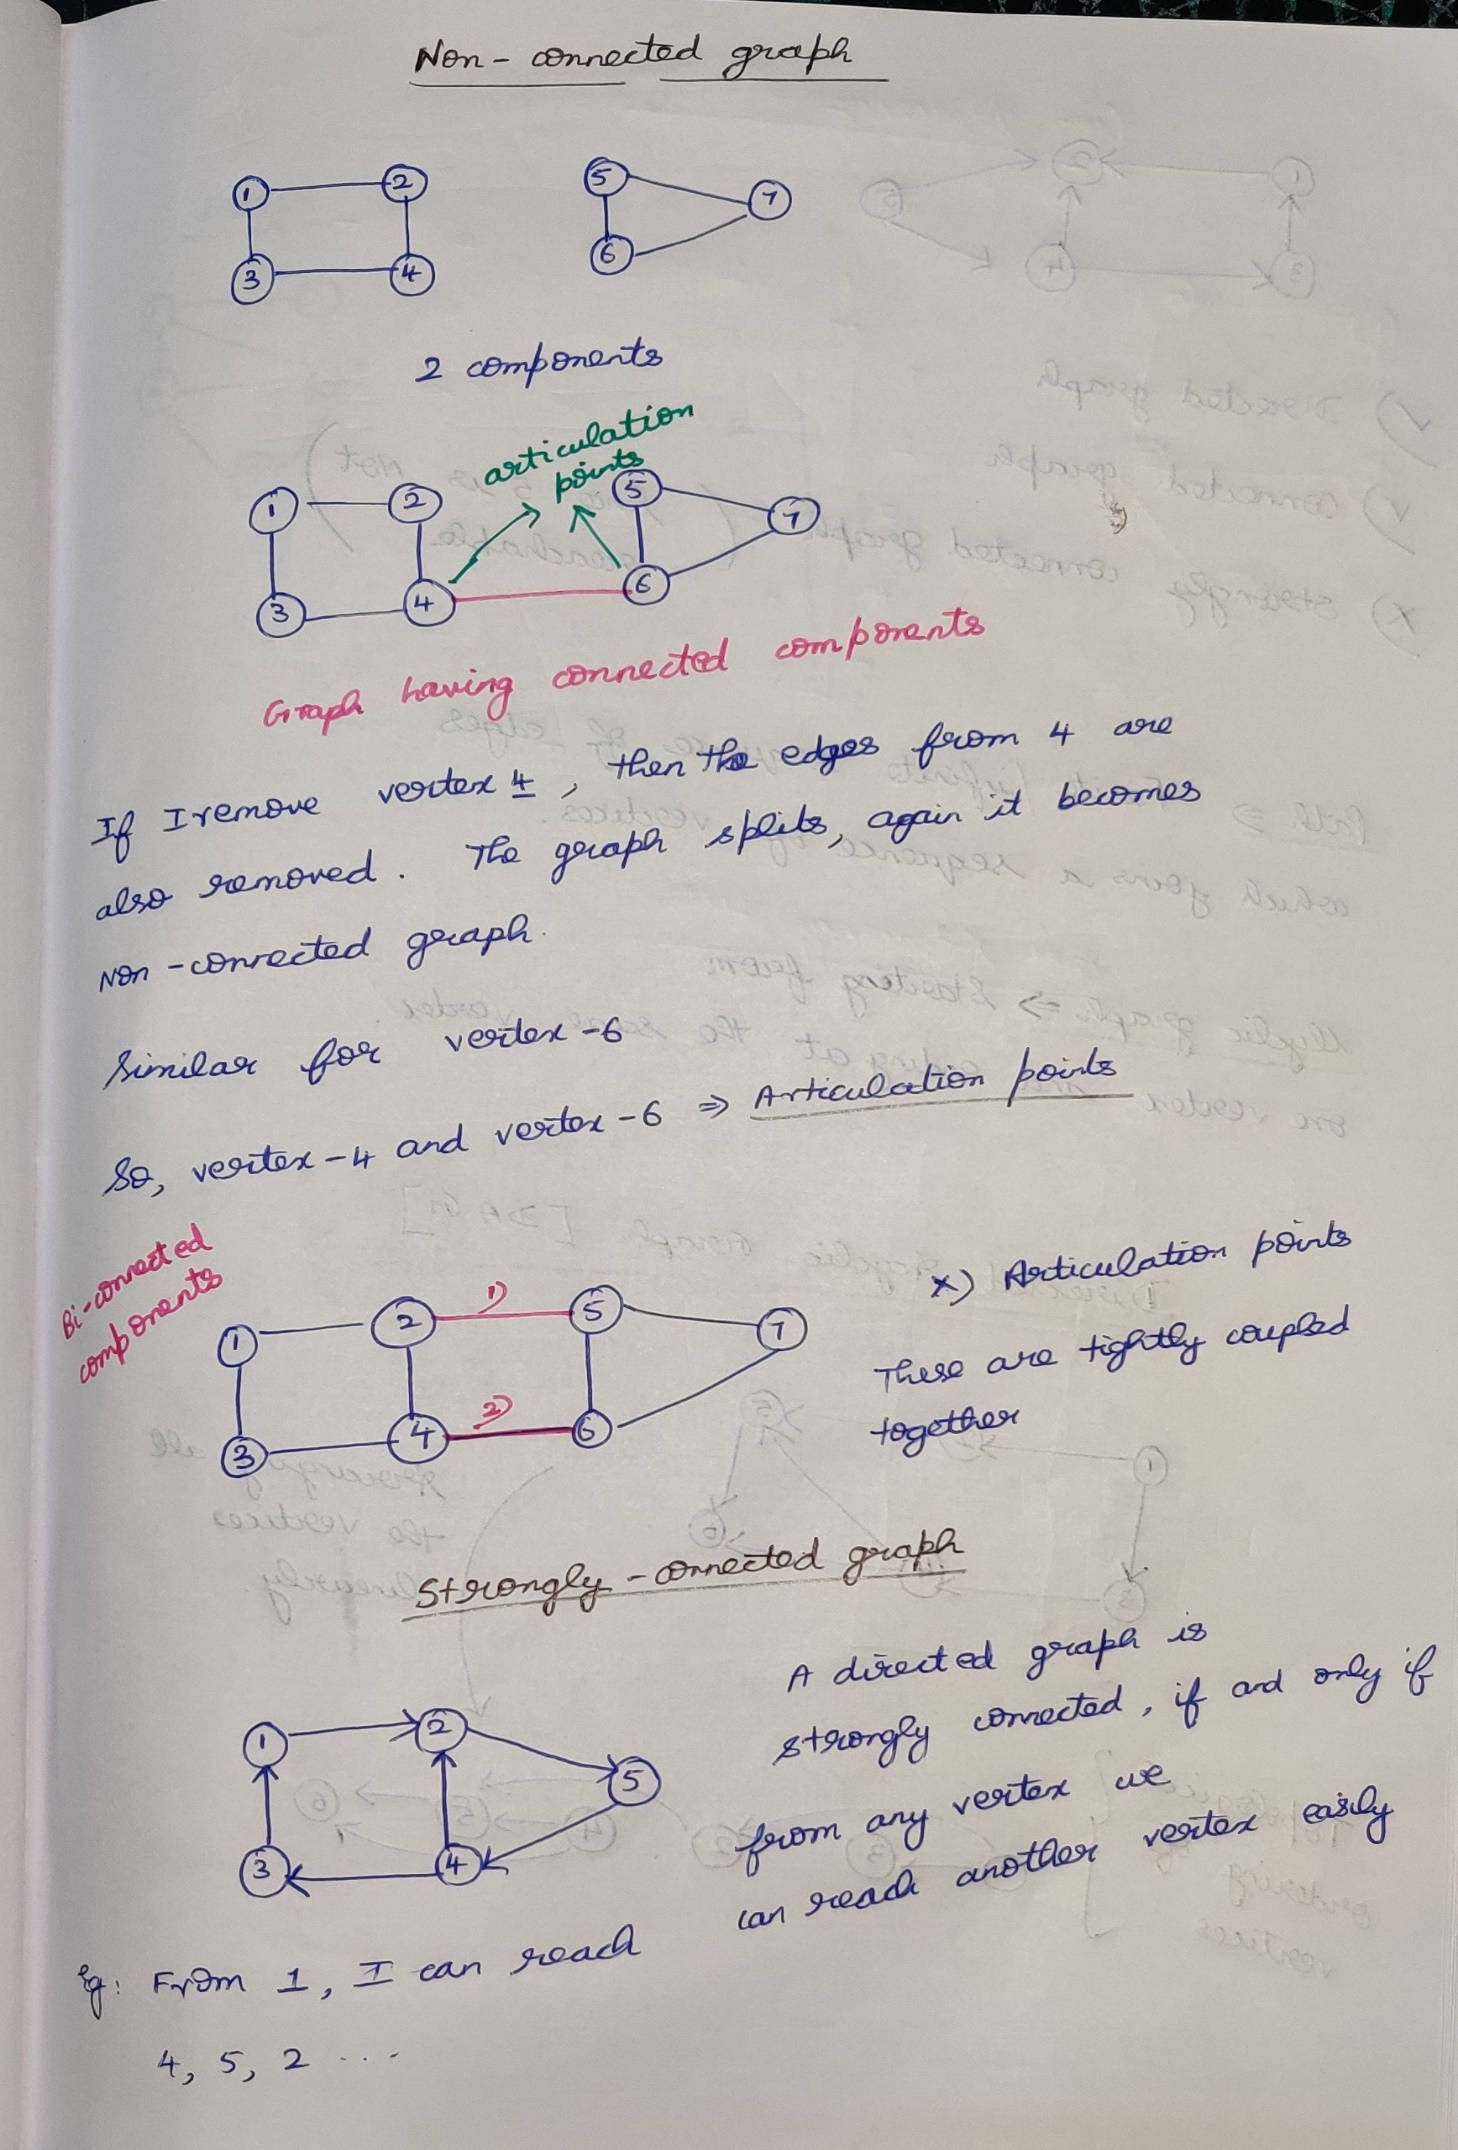 Non - connected graph
1 2 5 7
3 4 6
2 components
articulation
points
1 2 5 7
3 4 6
Graph having connected components
If I remove vertex 4, then the edges from 4 are
also removed. The graph splits, again it becomes
Non - connected graph.
Similar for vertex -6
So, vertex -4 and vertex -6 ⇒ Articulation points
Bi-connected
components
1 2 1) 5 7
3 4 2) 6
x) Articulation points
These are tightly coupled
together
Strongly - connected graph
1 2 5
3 4
A directed graph is
strongly connected, if and only if
from any vertex we
can reach another vertex easily
Eg: From 1, I can reach
4, 5, 2 ...